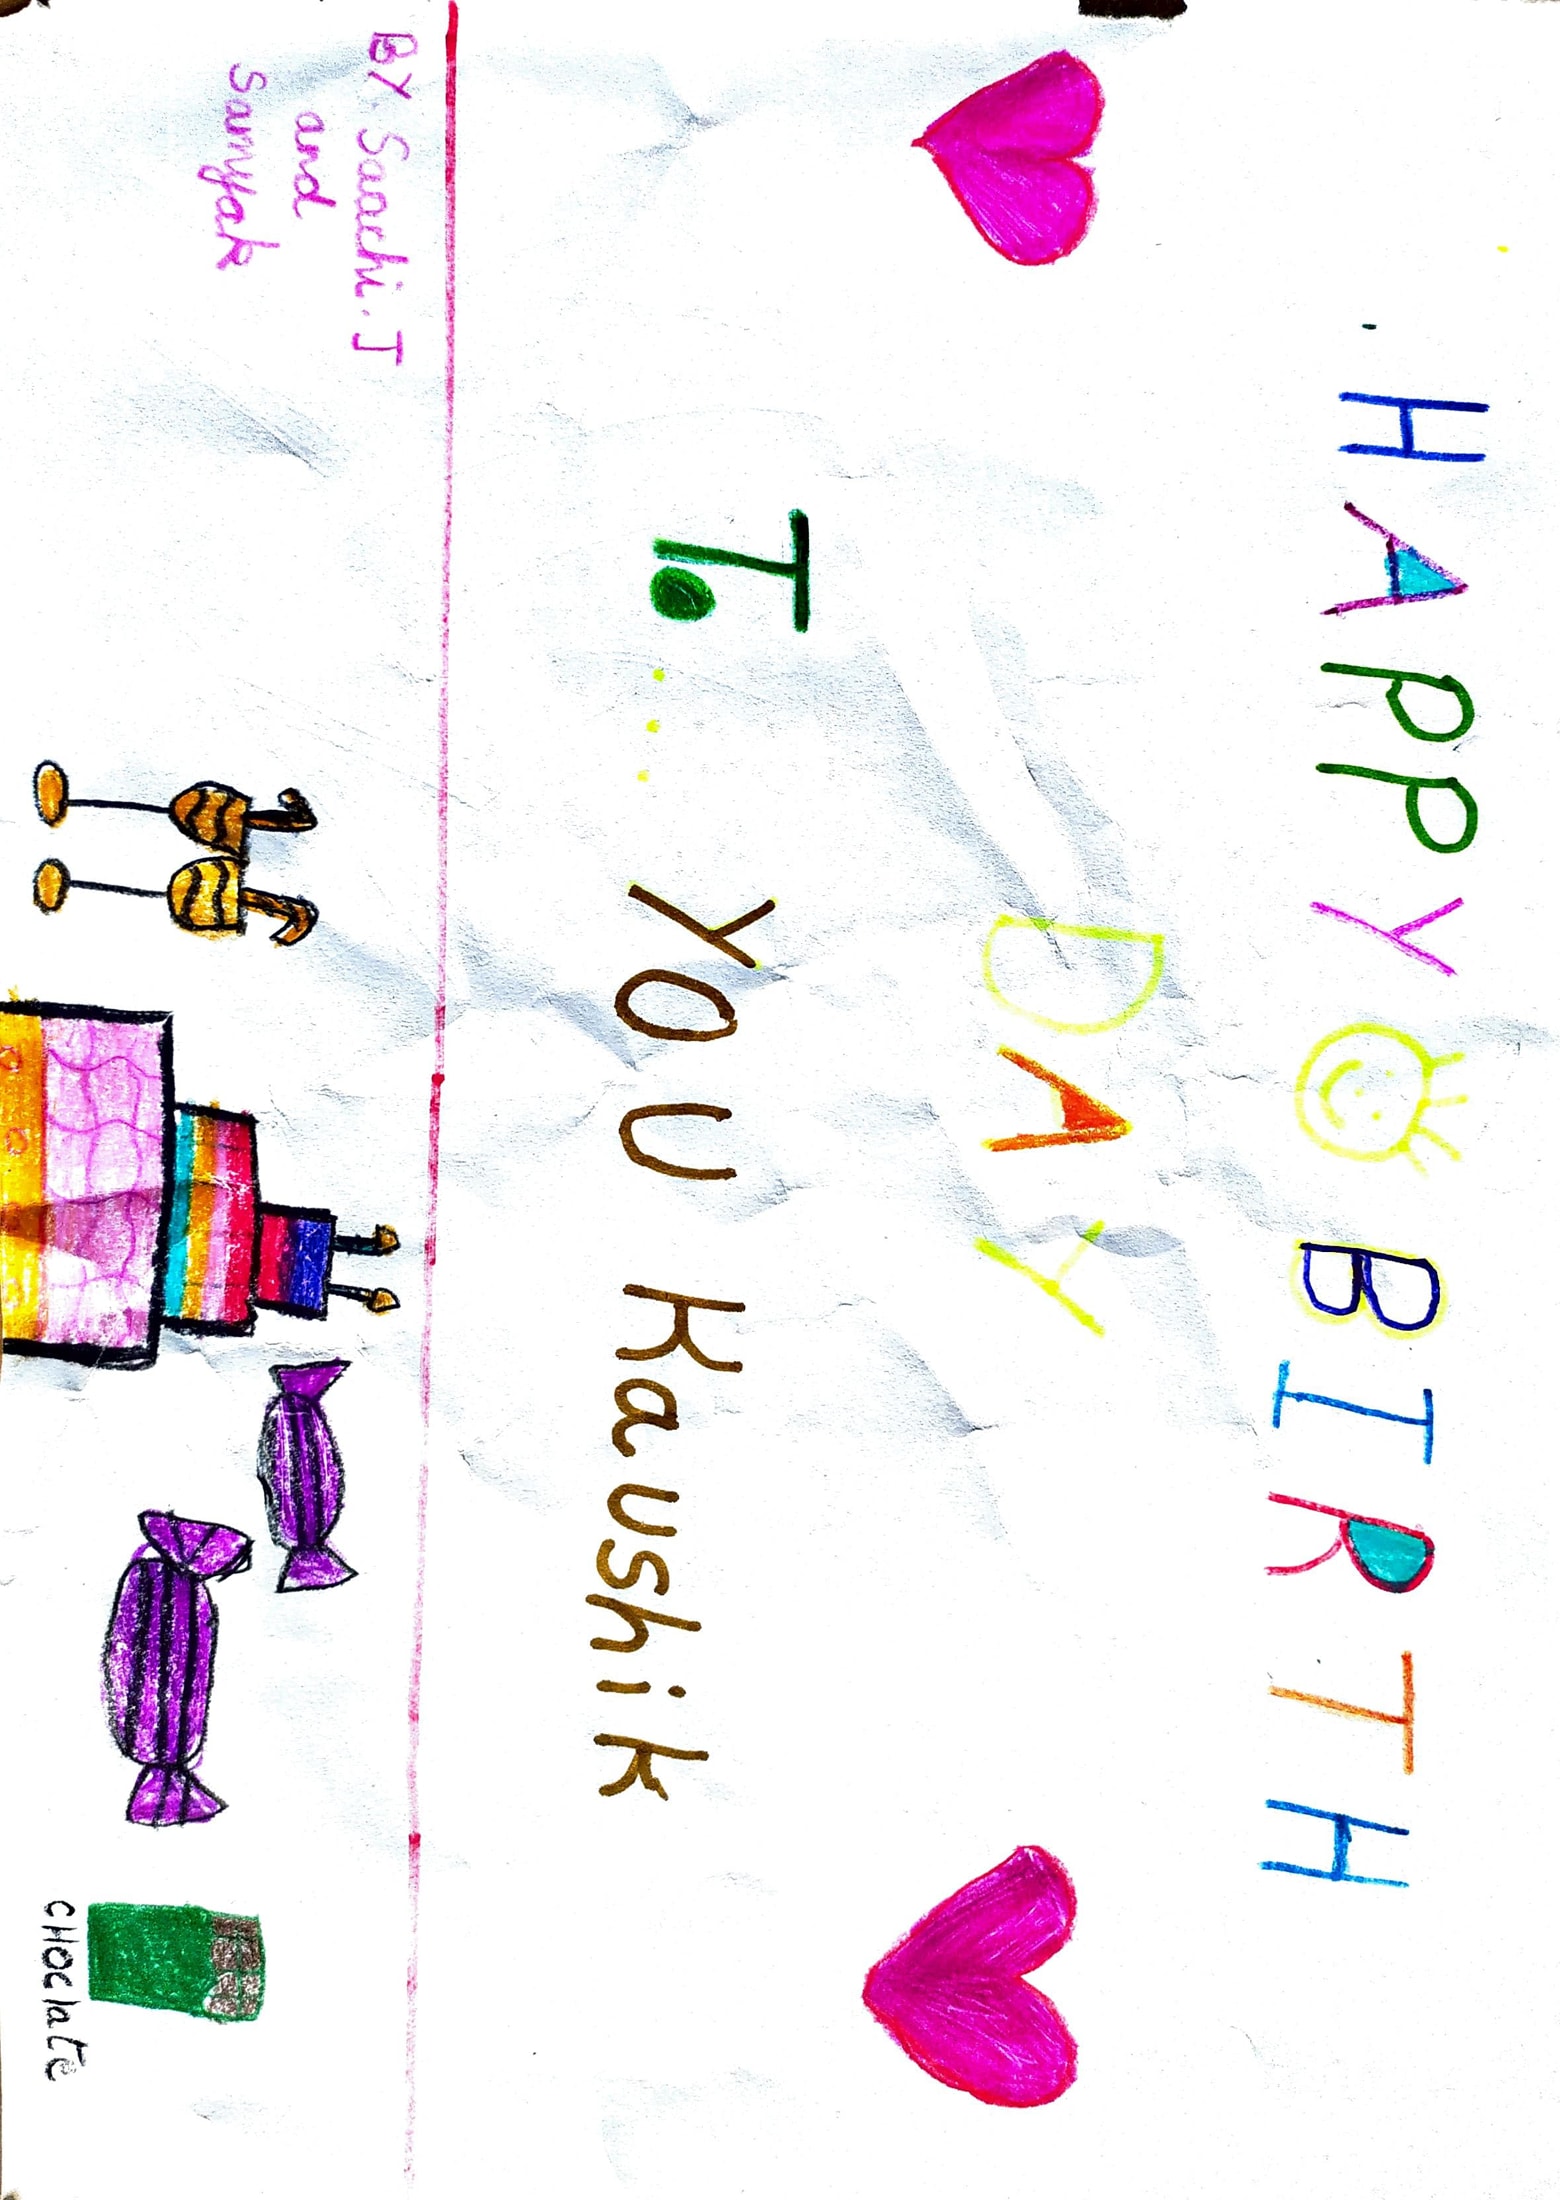 HAPPY BIRTH
DAY
To... YOU Kaushik
BY Saachi. J
and
Samyak
CHOClaTe